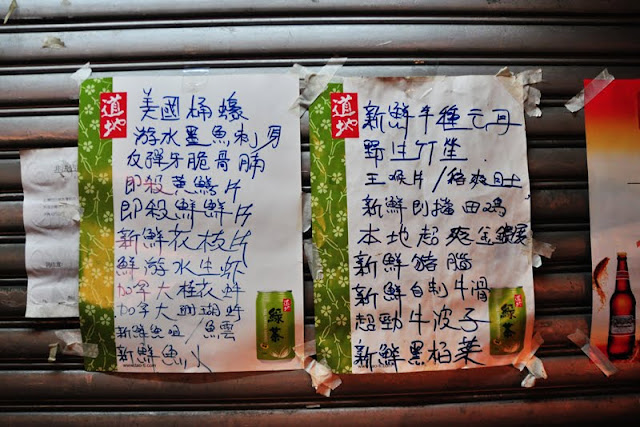 道地
美國桶蠔
游水墨魚刺身
反彈牙脆骨腩
即殺 鱔片
即殺鮮鱔片
新鮮花枝片
鮮游水生虾
加拿大桂花蚌
加拿大珊瑚蚌
新鮮魚 / 魚雲
新鮮魚
綠茶
道地
新鮮牛 元丹
野生竹笙
王喉片/豬爽土
新鮮即 田鸡
本地超爽金錢展
新鮮豬腦
新鮮自制牛滑
超勁牛波子
新鮮黑柏葉
綠茶